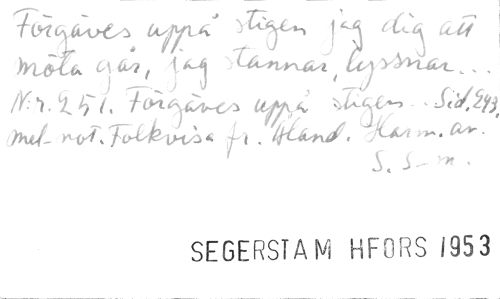 Förgäves uppå stigen jag dig att
möta går, jag stannar, lyssnar...
N:r. 251. Förgäves uppå stigen... Sid. 293,
mel. not. Folkvisa fr. Åland. Harm. av.
S. S-m.
SEGERSTAM HFORS 1953